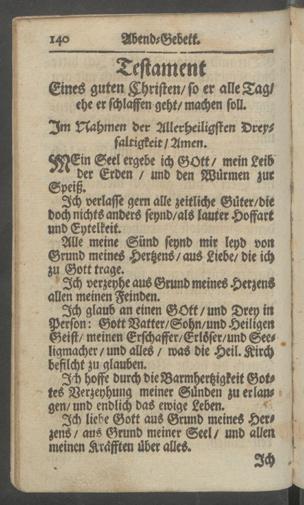 140 Abend-Gebett.
Testament
Eines guten Christen/ so er alle Tag/
ehe er schlaffen geht/ machen soll.
Im Nahmen der Allerheiligsten Drey-
faltigkeit/ Amen.
MEin Seel ergebe ich GOtt/ mein Leib
der Erden / und den Würmen zur
Speiß.
Ich verlasse gern alle zeitliche Güter/die
doch nichts anders seynd/als lauter Hoffart
und Eytelkeit.
Alle meine Sünd seynd mir leyd von
Grund meines Hertzens/ aus Liebe/ die ich
zu Gott trage.
Ich verzeyhe aus Grund meines Herzens
allen meinen Feinden.
Ich glaub an einen GOtt / und Drey in
Person: Gott Vatter/Sohn/und Heiligen
Geist/ meinen Erschaffer/Erlöser/und See-
ligmacher/und alles / was die Heil. Kirch
befilcht zu glauben.
Ich hoffe durch die Barmhertzigkeit Got-
tes Verzeyhung meiner Sünden zu erlan-
gen/ und endlich das ewige Leben.
Ich liebe Gott aus Grund meines Her-
zens / aus Grund meiner Seel / und allen
meinen Kräfften über alles.
Ich